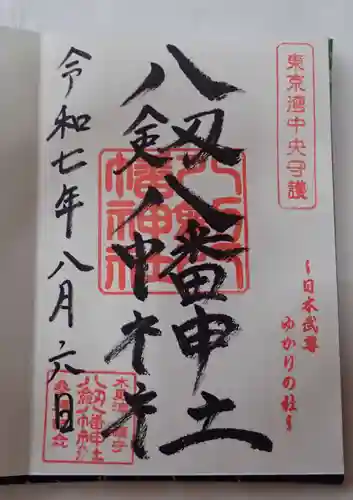 東京湾中央守護
~日本武尊
ゆかりの社~
八剱八幡神社
八剱八幡神社
令和七年八月六日
木更津鎮守
八剱八幡神社